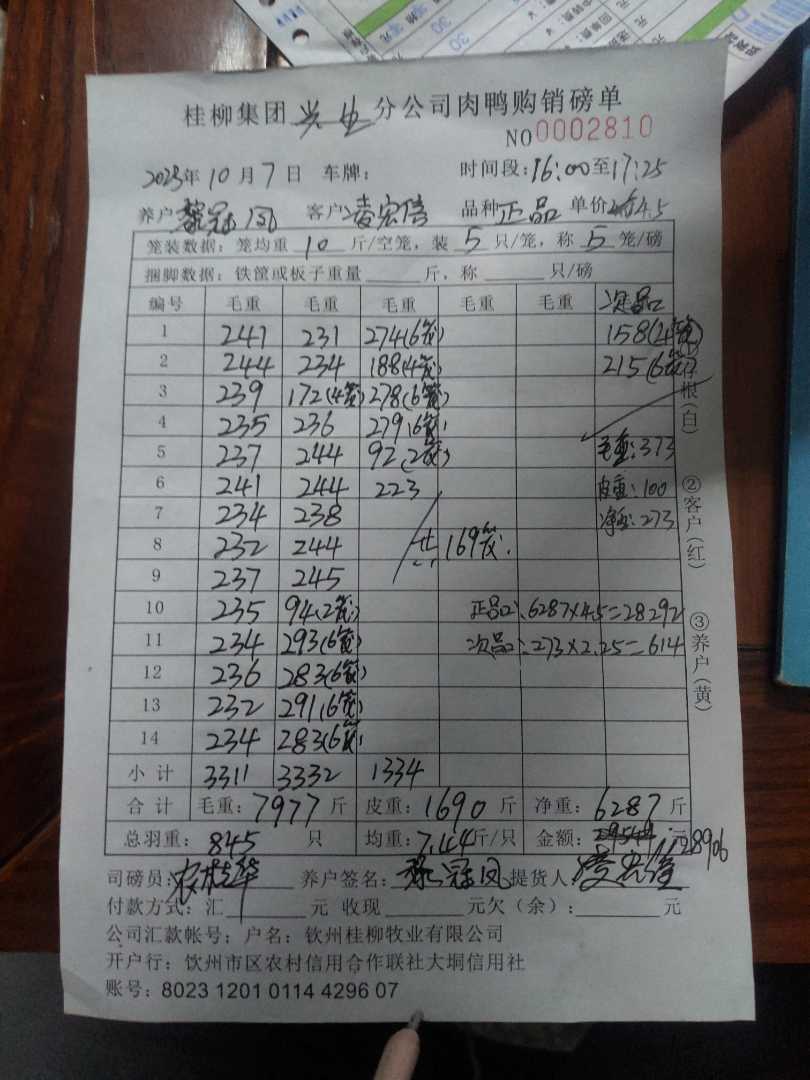 桂柳集团兴业分公司肉鸭购销磅单
NO0002810
2023年10月7日 车牌: 时间段:16:00至17:25
养户黎冠凤 客户凌宏信 品种正品 单价4.5
笼装数据:笼均重10斤/空笼,装5只/笼,称5笼/磅
捆脚数据:铁筐或板子重量 斤,称 只/磅
编号 毛重 毛重 毛重 毛重 毛重 次品
1 241 231 274(6笼) 158(4笼)
2 244 234 188(4笼) 215(6笼)
3 239 172(4笼) 278(6笼)
4 235 236 279(6笼)
5 237 244 92(2笼) 毛重:373
6 241 244 223 皮重:100
7 234 238 净重:273
8 232 244 共169笼.
9 237 245
10 235 94(2笼) 正品:6287×4.5=28292
11 234 293(6笼) 次品:273×2.25=614
12 236 283(6笼)
13 232 291(6笼)
14 234 283(6笼)
小计 3311 3332 1334
合计 毛重:7977斤 皮重:1690斤 净重:6287斤
总羽重:845只 均重:7.44斤/只 金额: 元 28906
司磅员:农桂华 养户签名:黎冠凤 提货人:凌宏信
付款方式:汇 元 收现 元欠(余): 元
公司汇款帐号:户名:钦州桂柳牧业有限公司
开户行:钦州市区农村信用合作联社大垌信用社
账号:8023 1201 0114 4296 07
根(白)
②客户(红)
③养户(黄)